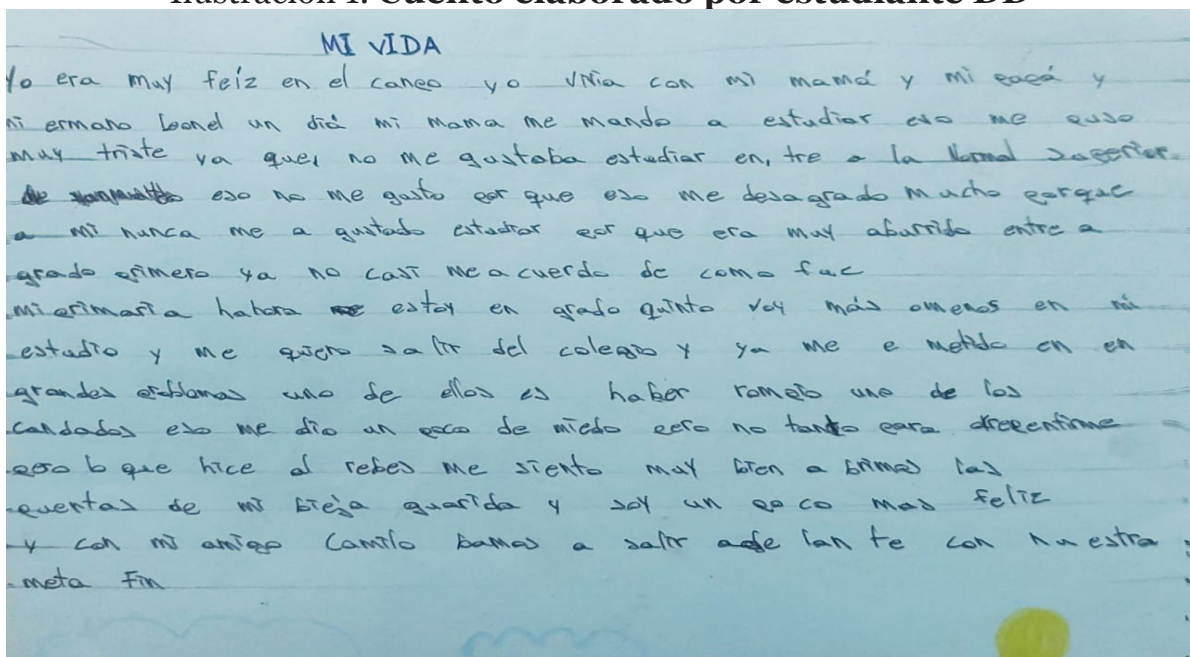 Ilustración 1. Cuento elaborado por estudiante DD
MI VIDA
Yo era muy feíz en el canpo yo vivia con mi mamá y mi papá y
mi ermano Leonel un diá mi mama me mando a estudiar eso me puso
muy triste ya que, no me gustaba estudiar en, tre a la Normal Superior
de eso no me gusto por que eso me desagrado mucho porque
a mi nunca me a gustado estudiar por que era muy aburrido entre a
grado primero ya no casi me acuerdo de como fue
mi primaria habora estoy en grado quinto voy más omenos en mi
estudio y me quiero salir del colegio y ya me e metido en en
grandes problamas uno de ellos es haber rompio uno de los
candados eso me dio un poco de miedo pero no tanto para arepentirme
pero lo que hice al rebes me siento muy bien a brimos las
puertas de mi bieja guarida y soy un po co mas feliz
y con mi amigo Camilo bamos a salir ade lan te con nuestra
meta Fin